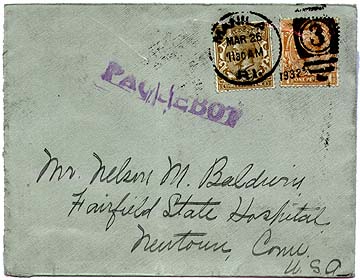 MANILA
MAR 26
11:30 AM
P.I.
1932
3
PAQUEBOT
Mr. Nelson M. Baldwin
Fairfield State Hospital
Newtown, Conn.
USA